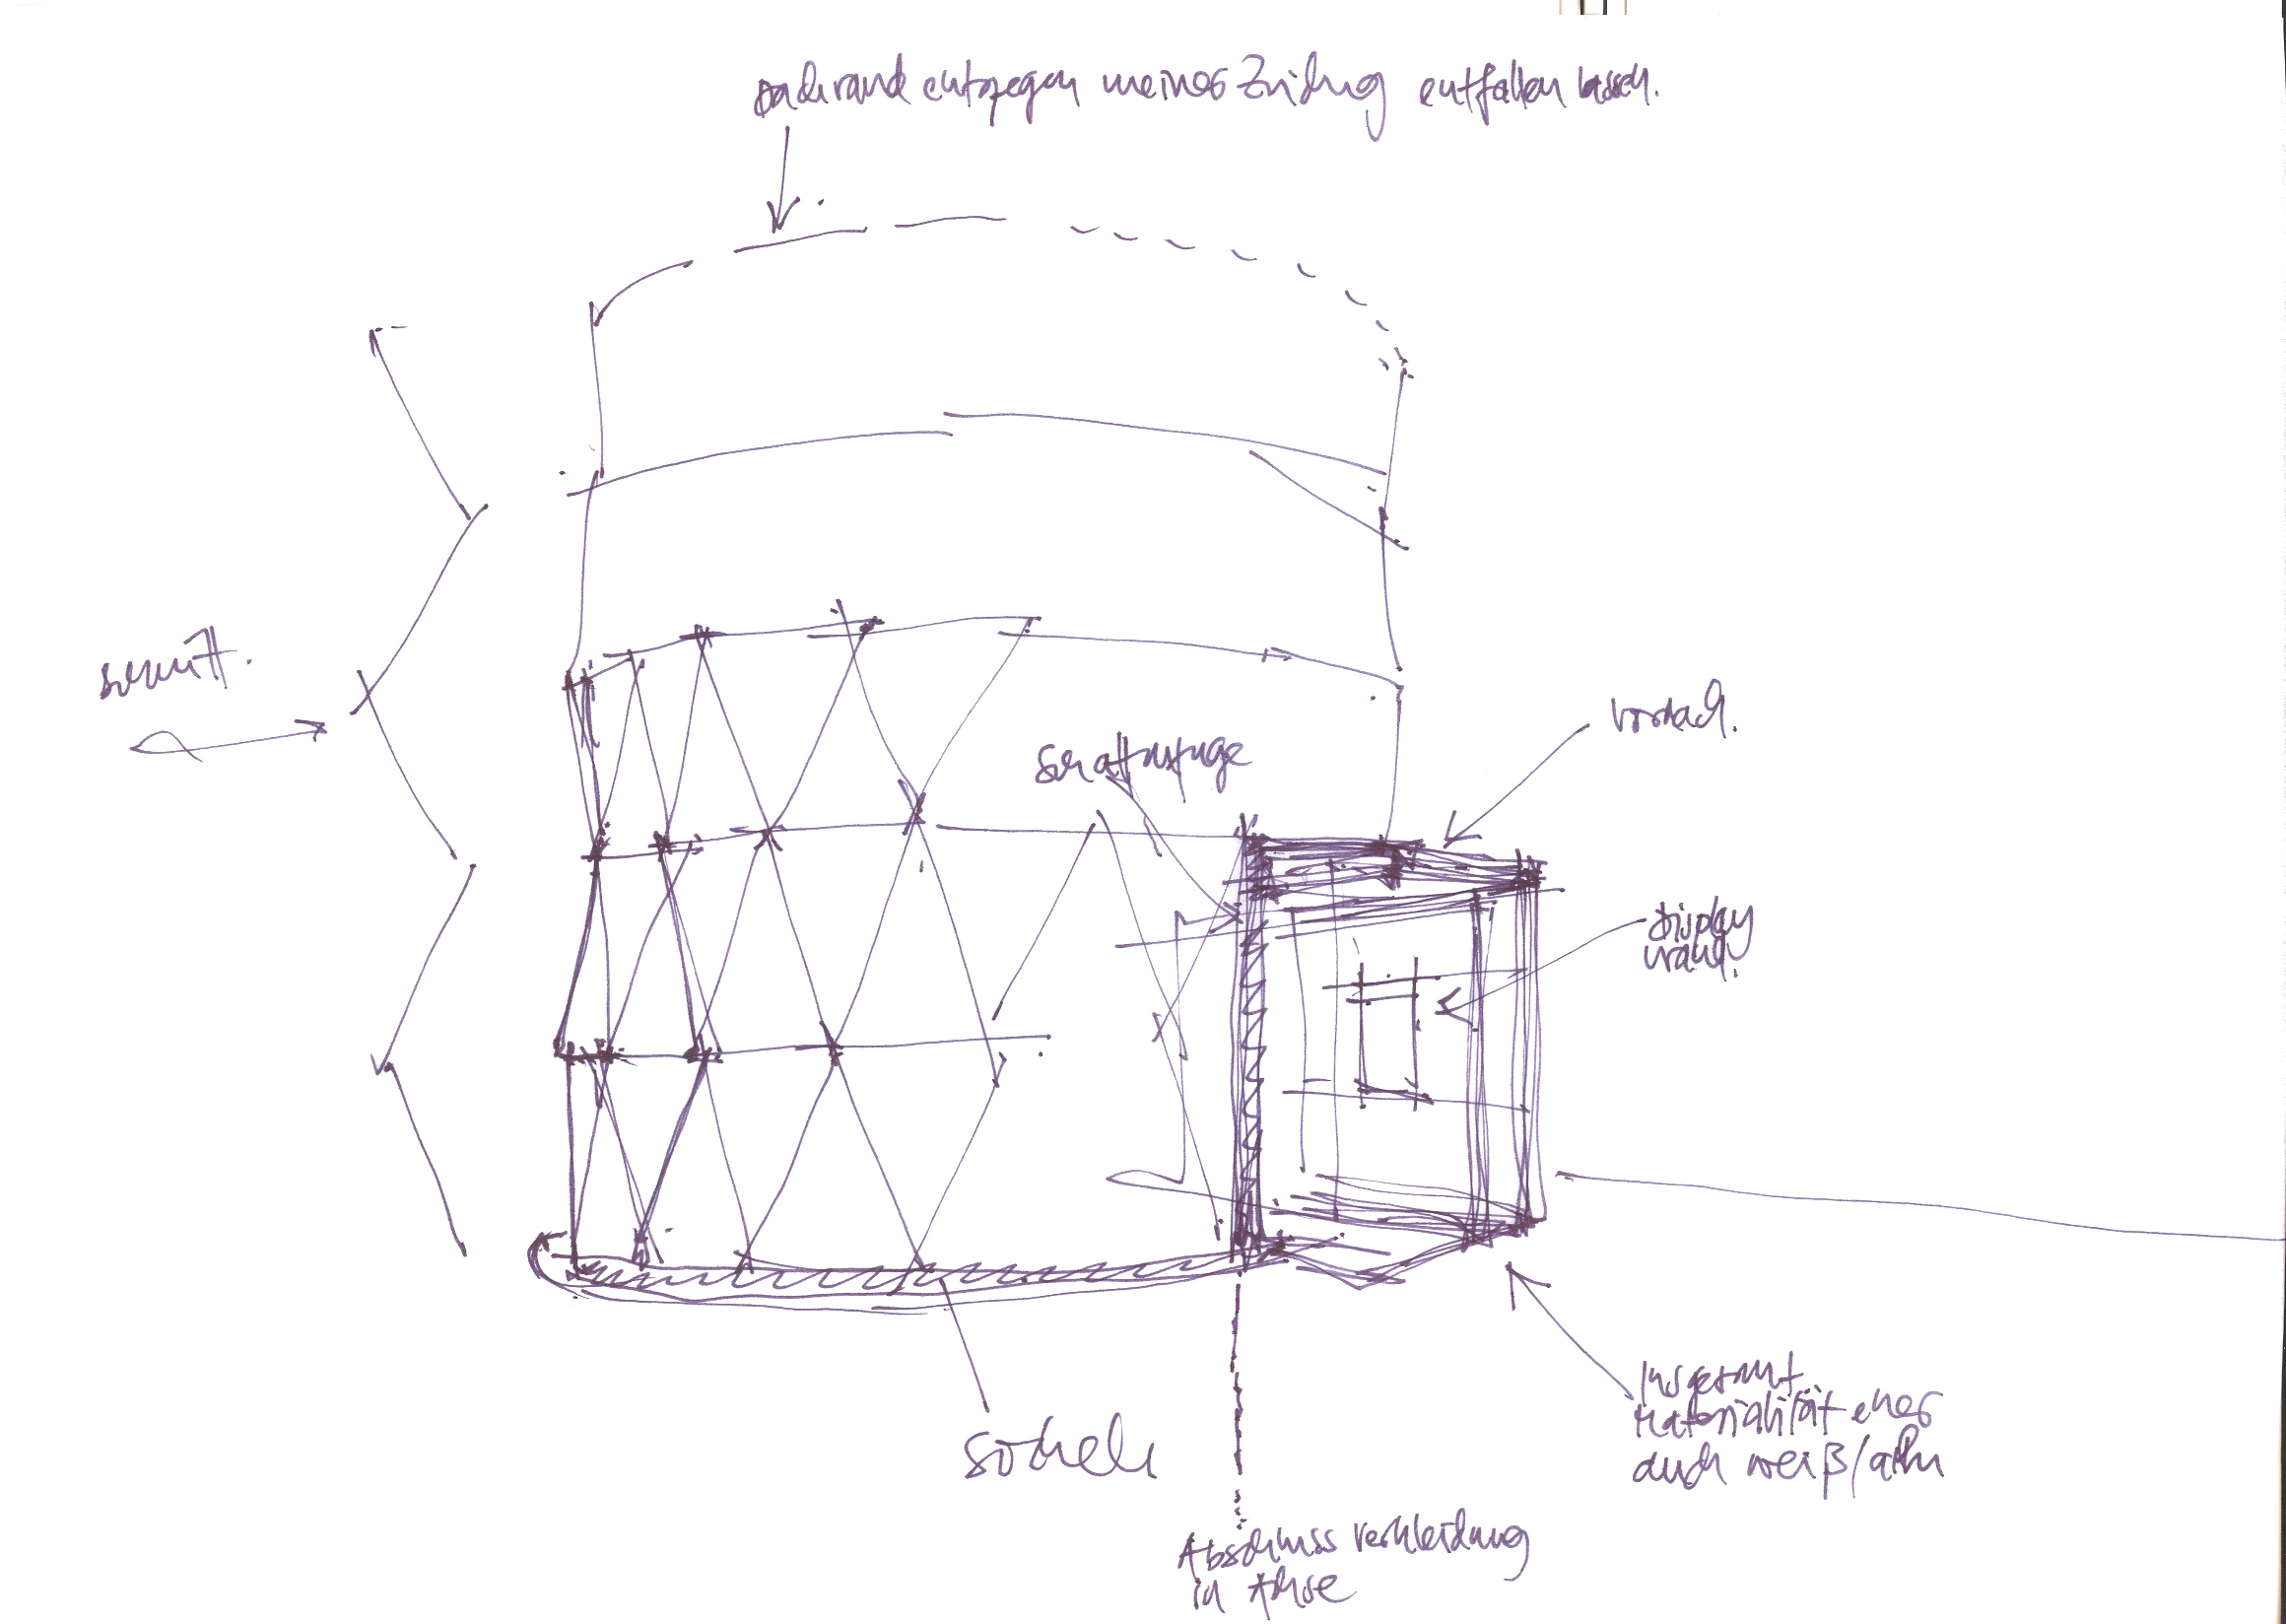 Dachrand entgegen meiner Zeichnung entfallen lassen.
Schnitt.
Vordach.
Schattenfuge
Display
wand.
Insgesamt
Materialität eher
auch weiß/
Sockel
Abschluss Verkleidung
in Achse